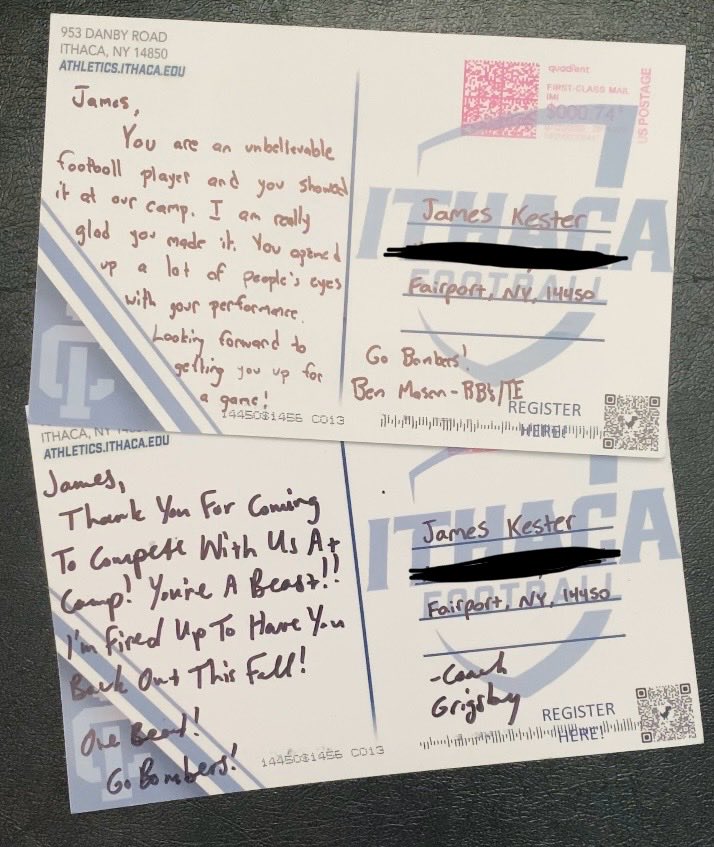 953 DANBY ROAD
ITHACA, NY 14850
ATHLETICS.ITHACA.EDU
James,
You are an unbelievable
football player and you showed
it at our camp. I am really
glad you made it. You opened
up a lot of people's eyes
with your performance.
Looking forward to
getting you up for
a game!
14450$1456 C013
quadient
FIRST-CLASS MAIL
IMI
$000.74
US POSTAGE
ITHACA
FOOTBALL
James Kester
Fairport, NY, 14450
Go Bombers!
Ben Mosen - RBs/TE
REGISTER
HERE!
ITHACA, NY
ATHLETICS.ITHACA.EDU
James,
Thank You For Coming
To Compete With Us At
Camp! You're A Beast!!
I'm Fired Up To Have You
Back Out This Fall!
One Beat!
Go Bombers!
14450$1456 C013
ITHACA
FOOTBALL
James Kester
Fairport, NY, 14450
-Coach
Grigsby
REGISTER
HERE!